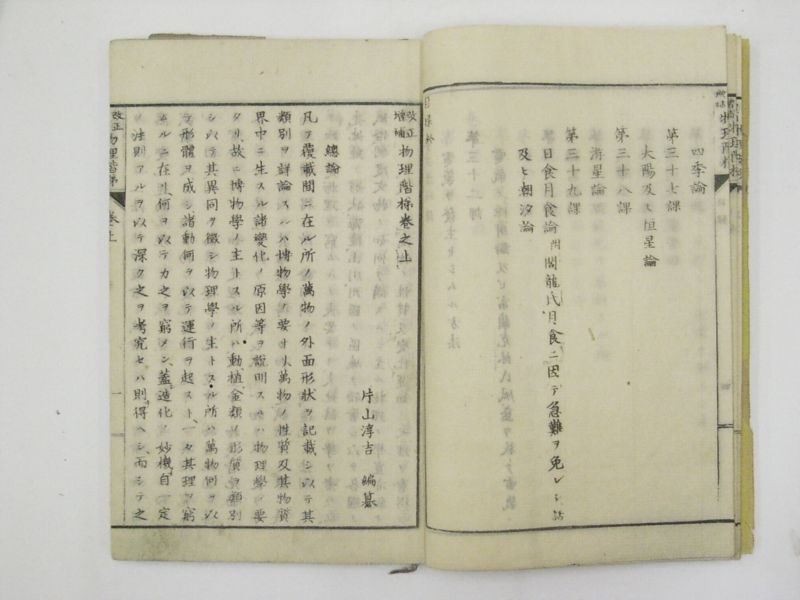 四季論
第三十七課
大陽及ヒ恒星論
第三十八課
海星論
第三十九課
日食月食論 附閣龍氏月食ニ因テ急難ヲ免レシ話
及ヒ朝汐論
改正増補物理階梯卷之上
片山淳吉 編纂
總論
凡ソ覆載間ニ在ル所ノ萬物ノ外面形狀ヲ記載シ以テ其
類別ヲ詳論スルハ博物學ノ要オ萬物ノ性質及其物質
界中ニ生スル諸變化ノ原因等ヲ說明スルハ物理學ノ要
タリ故ニ博物學ノ主トスル所ハ動植金類ノ形質ヲ類別
シ以テ其異同ヲ徵シ物理學ノ主トスル所ハ萬物何ヲ以
テ形體ヲ成シ諸動何ヲ以テ運行ヲ起スト一々其理ヲ窮
ムルニ在リ何ヲ以テカ之ヲ窮メン蓋造化ノ妙機自一定
ノ法則アルヲ以テ深ク之ヲ考究セハ則得ヘシ而シテ之
改正物理階梯 卷之上 一